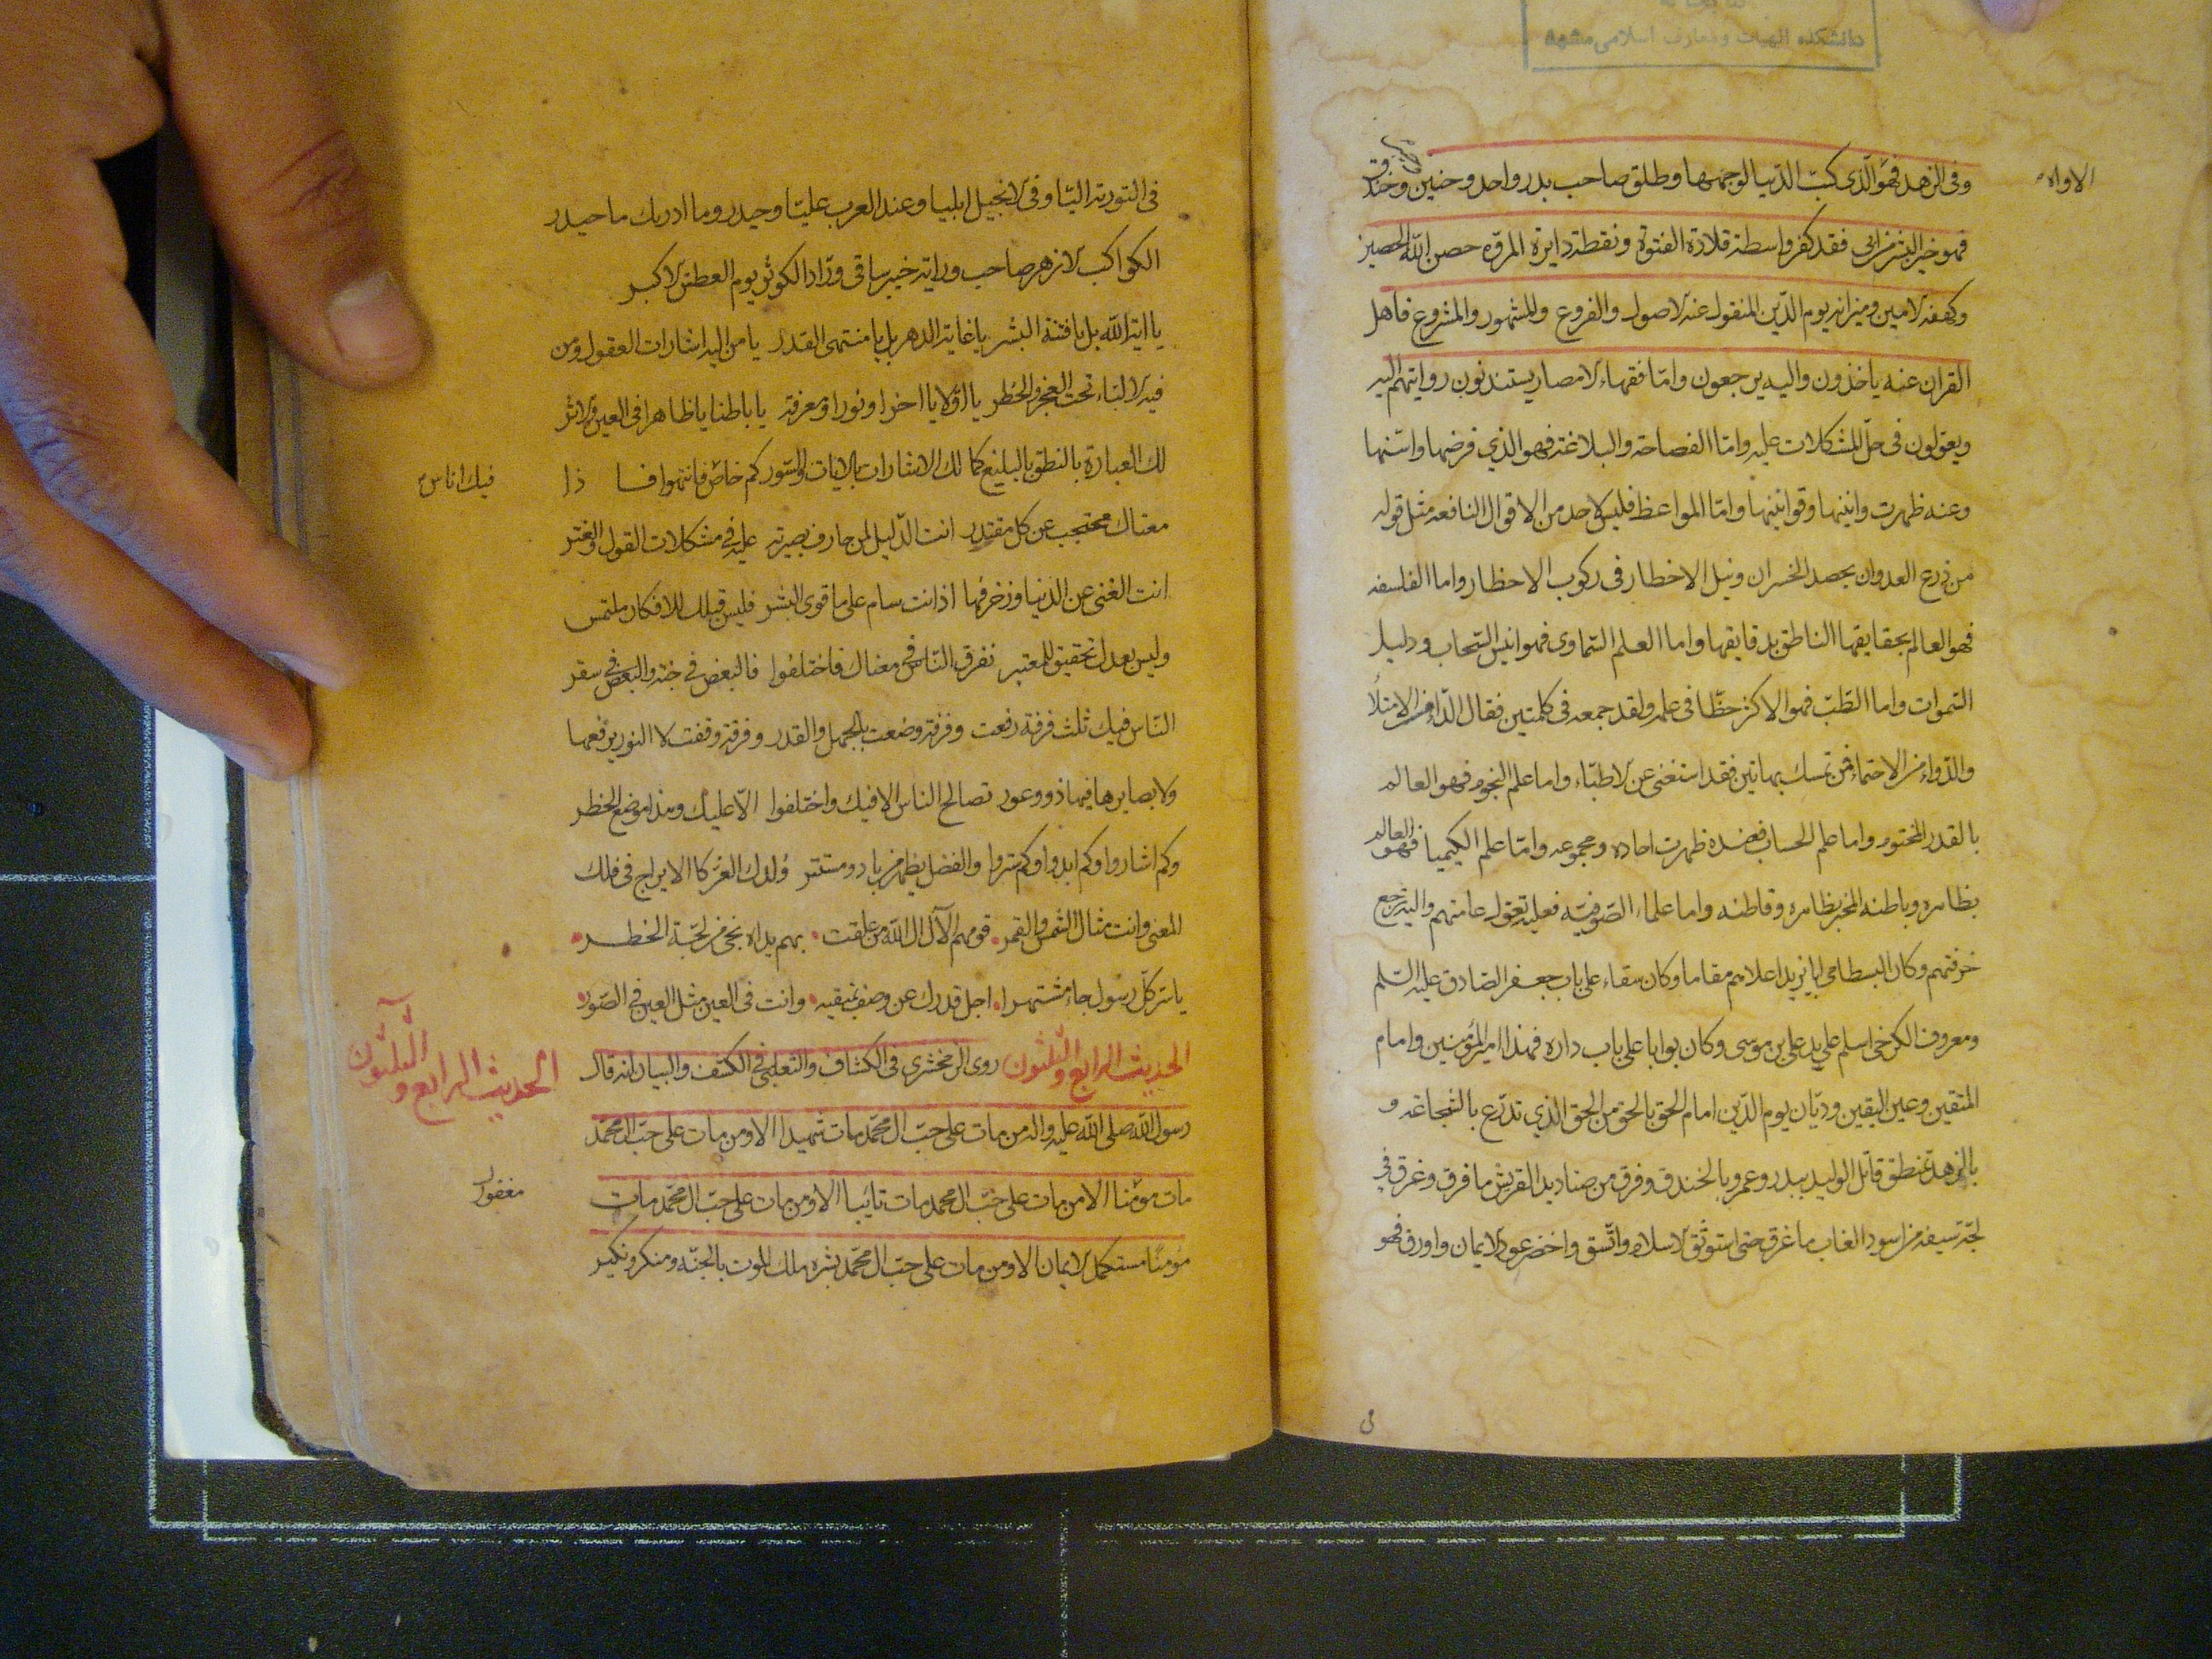 دانشكده الهيات ومعارف اسلامى مشهد
الاواه
وفى الزهد فهو الّذى كبّ الدّنيا لوجهها وطلّق صاحب بدر واحد وحنين وخندق
فهو خير البشر من ابى فقد كفر واسطة قلادة الفتوة ونقطة دايرة المروّه حصن الله الحصين
وكهفه الامين وميزانه يوم الدّين المنقول عنه الاصول والفروع والمشهور والمشروع فاهل
القران عنه ياخذون واليه يرجعون وامّا فقهاء الامصار يستندون روايتهم اليه
ويعولون فى حلّ المشكلات عليه وامّا الفصاحة والبلاغة فهو الذي فرضها واسّنها
وعنه ظهرت وابنيها وقوانينها وامّا المواعظ فليس لاحد من الاقوال النافعه مثل قوله
من زرع العدوان يحصد الخسران ونيل الاخطار فى ركوب الاحظار واما الفلسفه
فهو العالم بحقايقها الناطق بدقايقها واما العلم السّماوى فهو انيس السّحاب ودليل
السّموات واما الطّبّ فهو الاكثر حظّا فى علمه ولقد جمعه فى كلمتين فقال الدّاء من الامتلاء
والدّواء من الاحتماء فمن تمسك بهاتين فقد استغنى عن الاطبّاء واما علم النجوم فهو العالم
بالقدر المختوم واما علم الحساب فعنده ظهرت احاده ومجموعه وامّا علم الكيميا فهو العالم
بظاهره وباطنه المخبر بظاهره وقاطنه واما علماء الصّوفيّه فعليه تعول عامتهم واليه ترجع
خرقتهم وكان البسطامى ابايزيد اعلاهم مقاما وكان سقاء على باب جعفر الصّادق عليه السّلم
ومعروف الكرخى اسلم على يد على بن موسى وكان بوابا على باب داره فهذا امير المؤمنين وامام
المتقين وعين اليقين وديّان يوم الدّين امام الحق بالحق من الحق الذي تدرّع بالشجاعة و
بالزهد تمنطق قاتل الوليد ببدر وعمرو بالخندق وفرق من صناديد القريش ما فرق وغرق فى
لجّة سيفه من اسود الغاب ما غرق حتى استوثق الاسلام واتّسق واخضر عود الايمان واورق فهو
فى
فى التورية اليّا وفى الانجيل ايليا وعند العرب عليّا وحيدر وما ادريك ما حيدر
الكواكب الازهر صاحب وراية خيبر ساقى ورّاد الكوثر يوم العطش الاكبر
يا اية الله بل يا فتنة البشر يا غاية الدهر بل يا منتهى القدر يا من اليه اشارات العقول ومن
فيه الالبّاء تحت العجز والخطر يا اوّلا يا اخرا ونورا ومعرفة يا باطنا يا ظاهرا فى العين والاثر
لك العبارة بالنطق البليغ كما لك الاشارات بالايات والسّور كم خاض فانتهوا فا ذا
فيك اناس
معناك محتجب عن كل مقتدر انت الدّليل لمن حارف بصيرته عليه فى مشكلات القول والغير
انت الغنى عن الدّنيا وزخرفها اذ انت سام على ما قوى البشر فليس قبلك للافكار ملتمس
وليس بعدك تحقيق للمعتبر تفرق النّاس فى معناك فاختلفوا فالبعض فى جنّة والبعض فى سقر
النّاس فيك ثلث فرقة رفعت وفرقة وضعت بالجهل والقدر وفرقة وقفت لا النور يرفعها
ولا بصايرها فيها ذو وعور تصالح النّاس الا فيك واختلفوا الّا عليك وهذا موضع الخطر
وكم اشاروا وكم ابدوا وكم ستروا والفضل يظهر من باد ومستتر ولدك الغر كا الابراج فى فلك
المعنى وانت مثال الشمس والقمر قوم هم الآل ال الله من علقت بهم يداه نجى من لجّة الخطر
يا سرّ كلّ رسول جاء مشتهرا اجل قدرك عن وصف نميقيه وانت فى العين مثل العين فى الصّور
الحديث الرابع والثلثون روى الزمخشرى فى الكشّاف والثعلبى فى الكشف والبيان انه قال
الحديث الرابع والثلثون
رسول الله صلى الله عليه واله من مات على حبّ ال محمّد مات شهيدا الا ومن مات على حبّ ال محمّد
مات مؤمنا الا من مات على حبّ ال محمد مات تائبا الا ومن مات على حبّ ال محمّد مات
مغفور
مؤمنا مستكمل الايمان الا ومن مات على حبّ ال محمّد بشره ملك الموت بالجنّه ومنكر ونكير